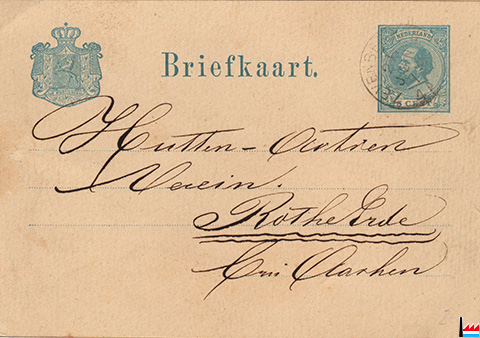 NEDERLAND
Briefkaart.
5 CENT
Hutten-Actien
Verein.
Rothe Erde
bei Aachen